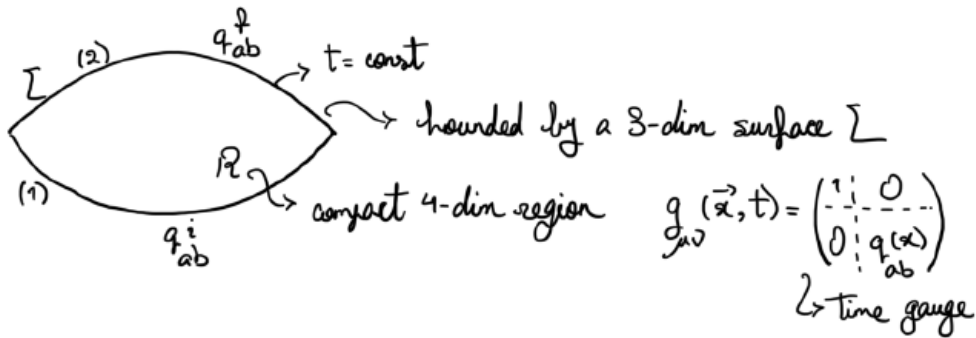 (2) q_{ab}^{f}
t = const
Σ
bounded by a 3-dim surface Σ
(1) R
compact 4-dim region g_{μν}(\vec{x}, t) = \begin{pmatrix} 1 & 0 \\ 0 & q_{ab}(x) \end{pmatrix}
q_{ab}^{i}
Time gauge